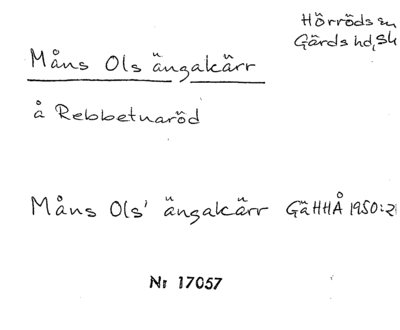 Hörröds sn
Gärds hd, Sk
Måns Ols ängakärr
å Rebbetuaröd
Måns Ols' ängakärr GäHHÅ 1950:21
Nr 17057